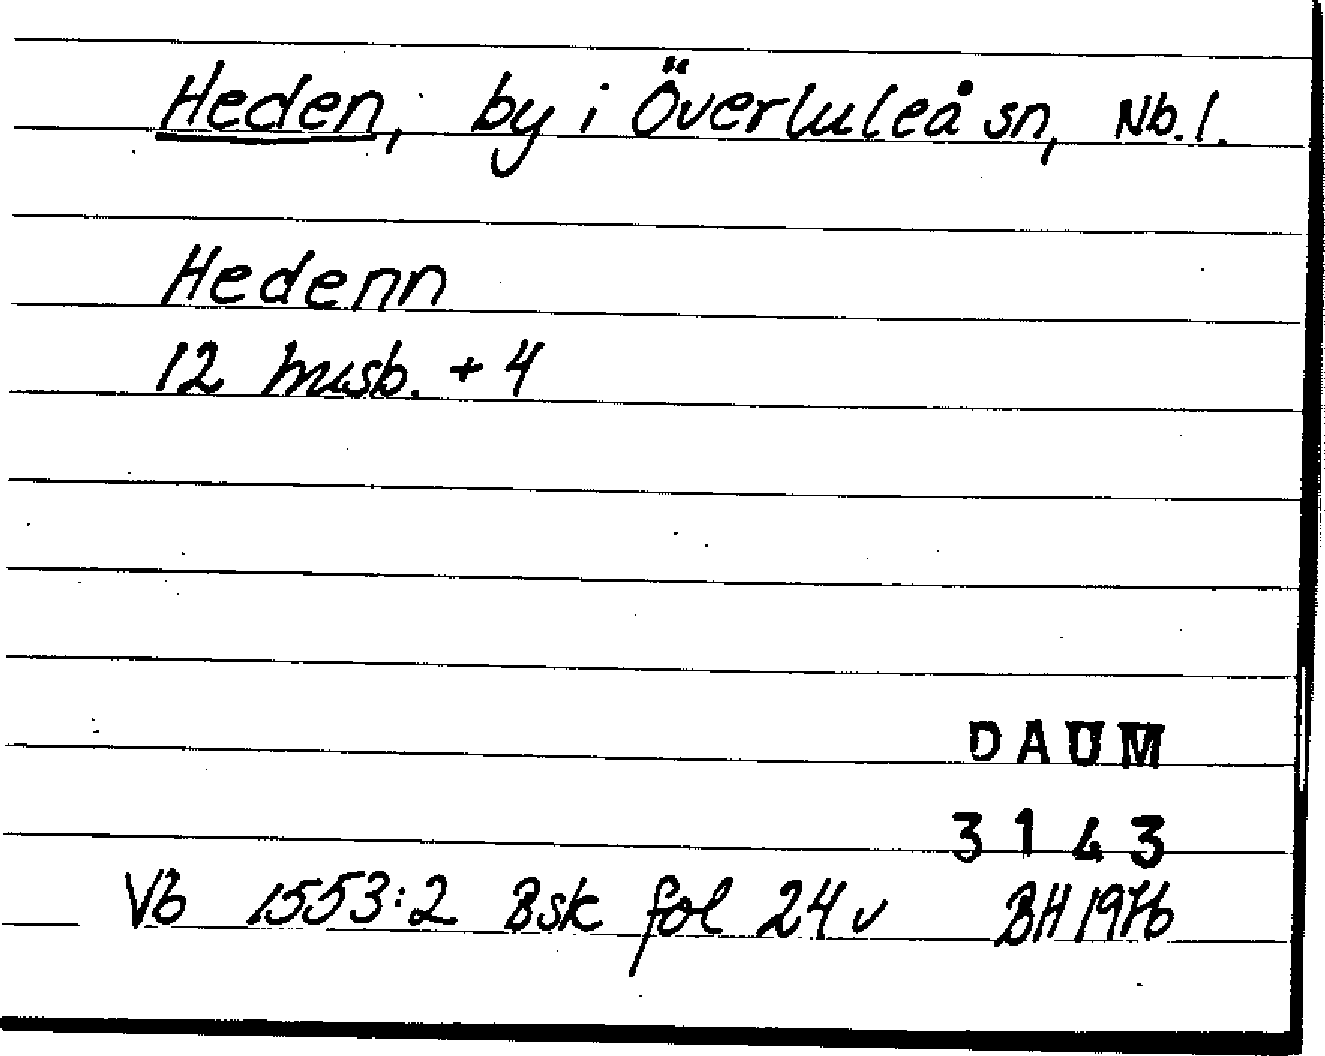 Heden, by i Överluleå sn, Nb. l.
Hedenn
12 husb. + 4
DAUM
3143
Vb 1553:2 Bsk fol 24 v BH 1976